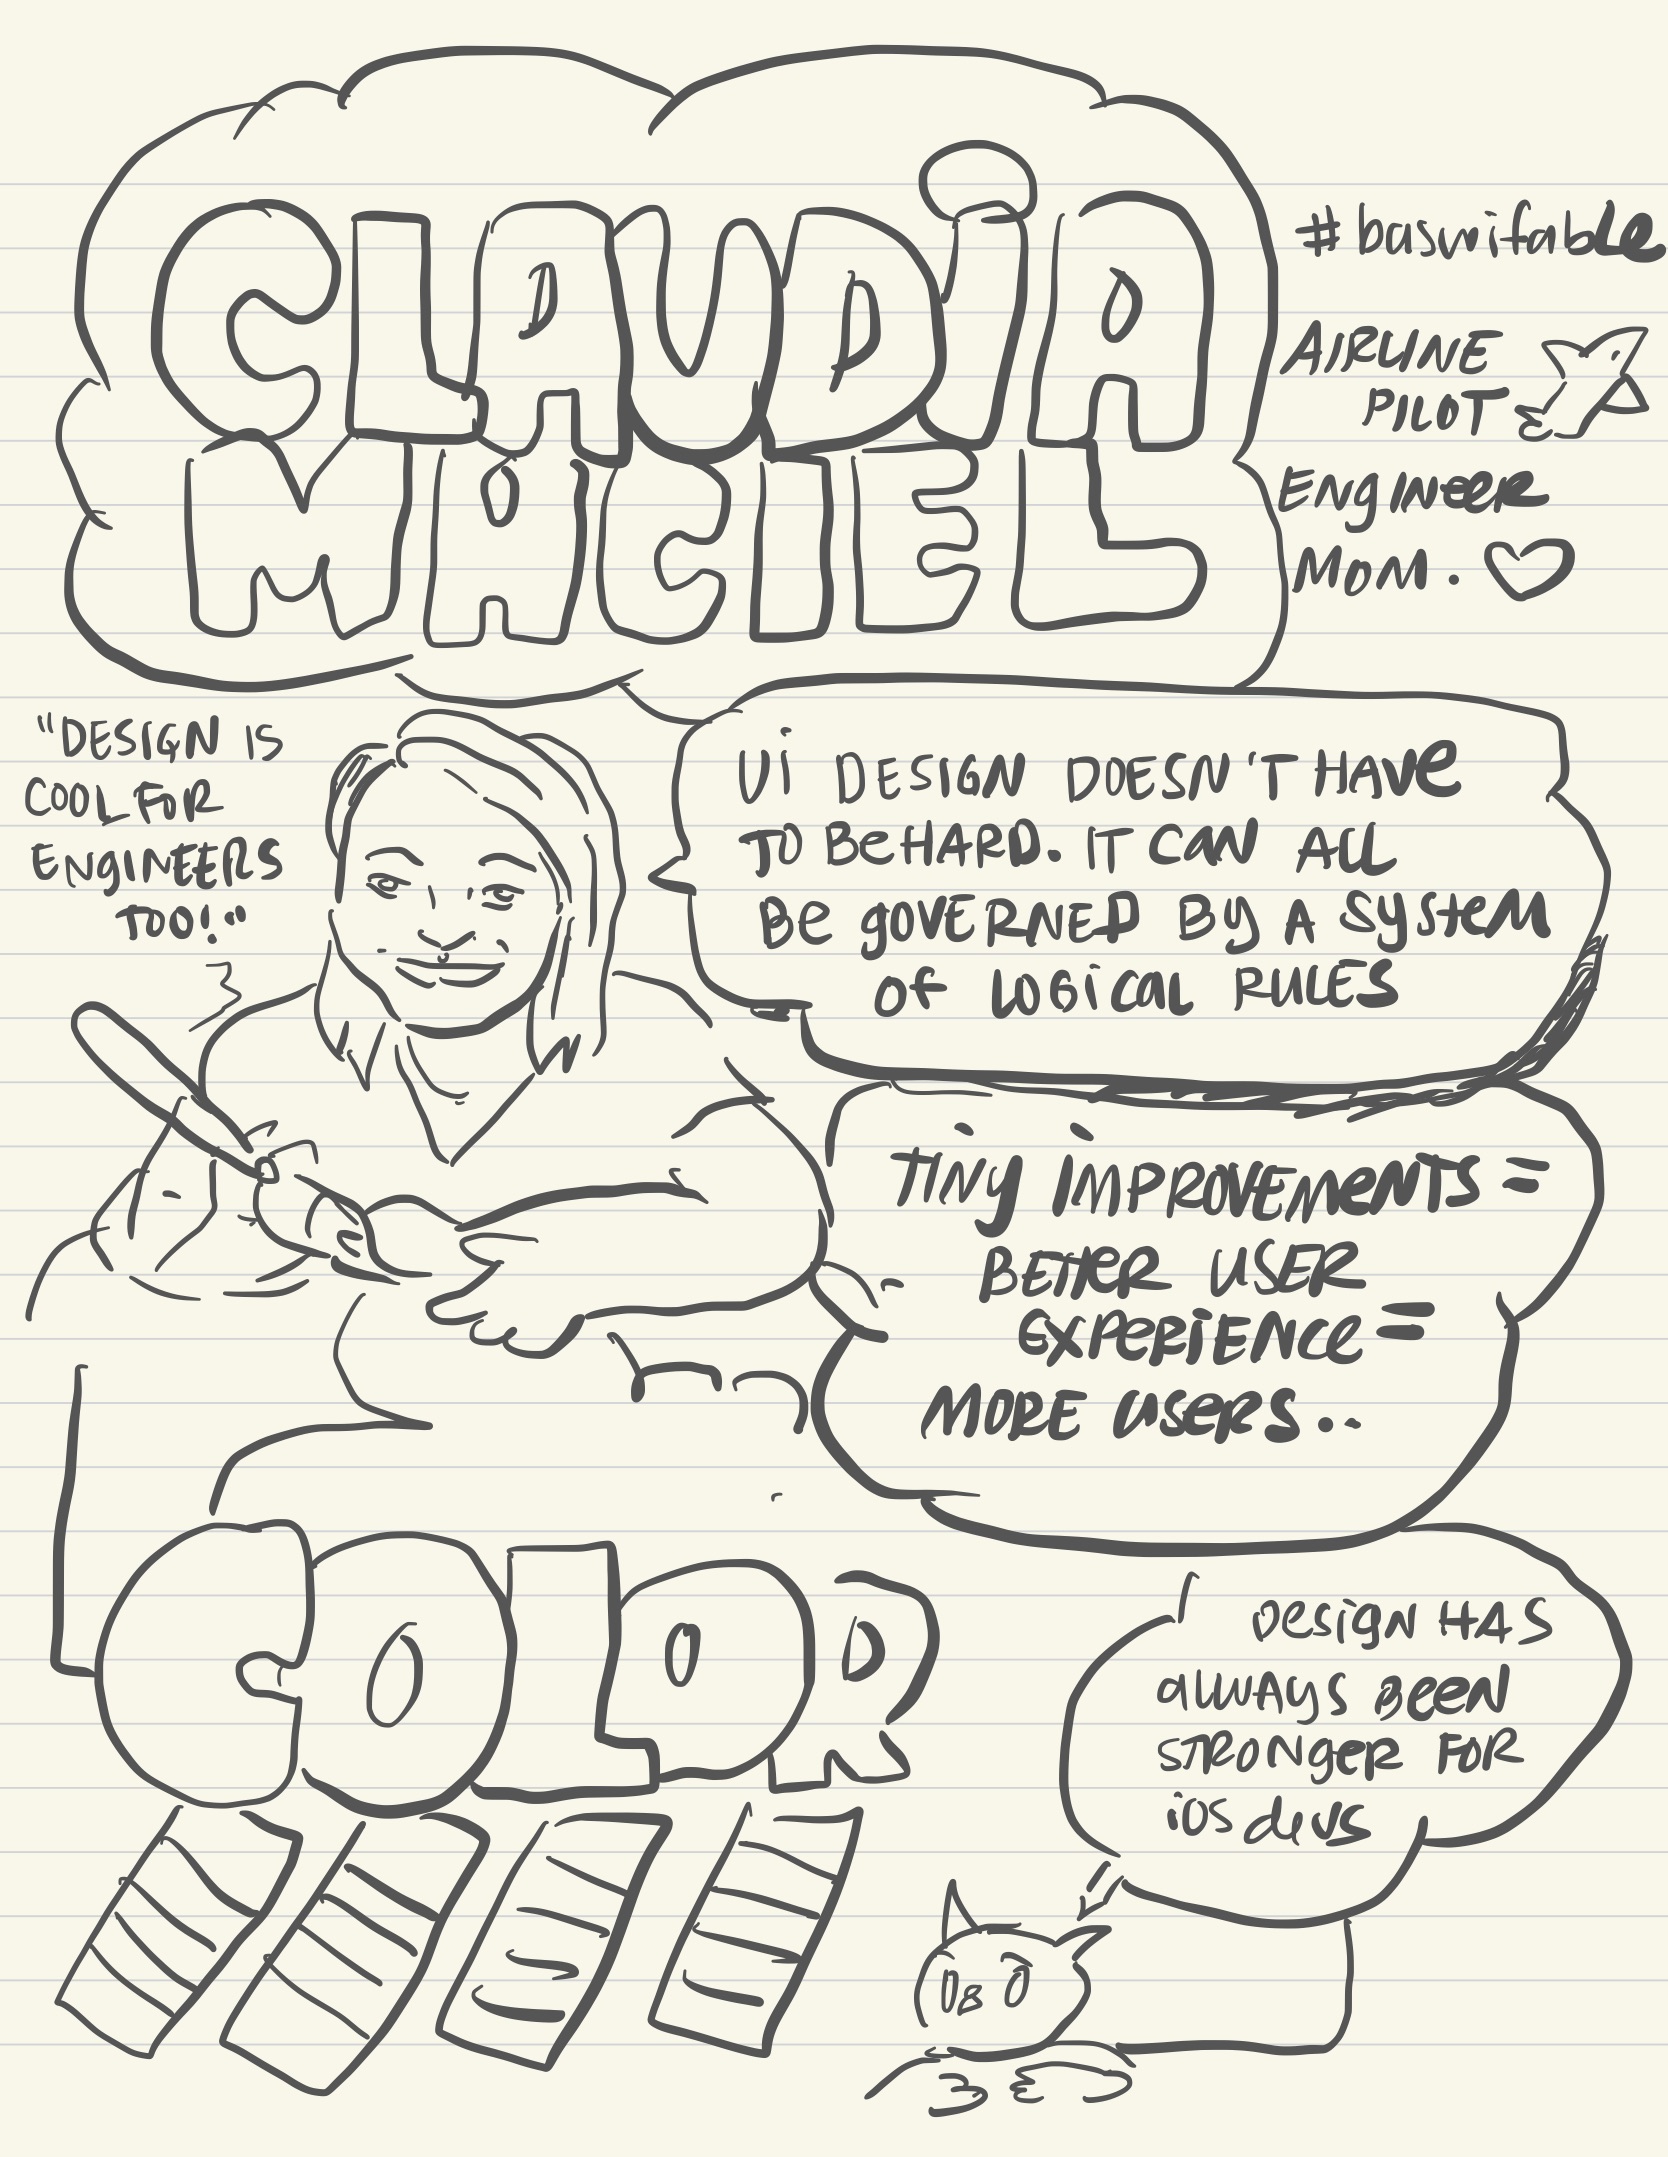 CLAUDiA
MACIEL
#baswifable
AIRLINE
PILOT
ENgINeeR
MOM. ♡
"DESIGN IS
COOL FOR
ENgINEERS
TOO!"
Ui DESIGN DOESN'T HAVe
TO Be HARD. IT CAN ALL
Be gOVERNED BY A SYSteM
Of LOGiCAL RULES
TiNy iMPROVEMeNTS =
BETTeR USER
EXPeRiENCe =
MORE USeRS...
DeSigN HAS
alWAYS BEEN
STRONgeR FOR
iOS devs
COLOR